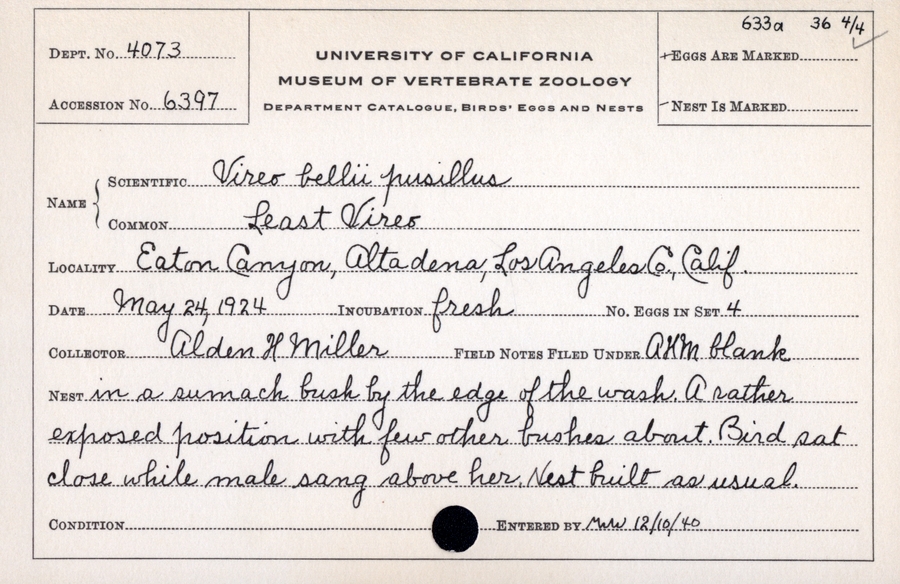 633a 36 4/4
Dept. No. 4073
UNIVERSITY OF CALIFORNIA
MUSEUM OF VERTEBRATE ZOOLOGY
Department Catalogue, Birds' Eggs and Nests
Eggs Are Marked
Accession No. 6397
Nest Is Marked
Name
Scientific Vireo bellii pusillus
Common Least Vireo
Locality Eaton Canyon, Altadena, Los Angeles Co., Calif.
Date May 24, 1924 Incubation fresh No. Eggs in Set 4
Collector Alden H Miller Field Notes Filed Under AHM blank
Nest in a sumach bush by the edge of the wash. A rather
exposed position with few other bushes about. Bird sat
close while male sang above her. Nest built as usual.
Condition Entered by 12/10/40